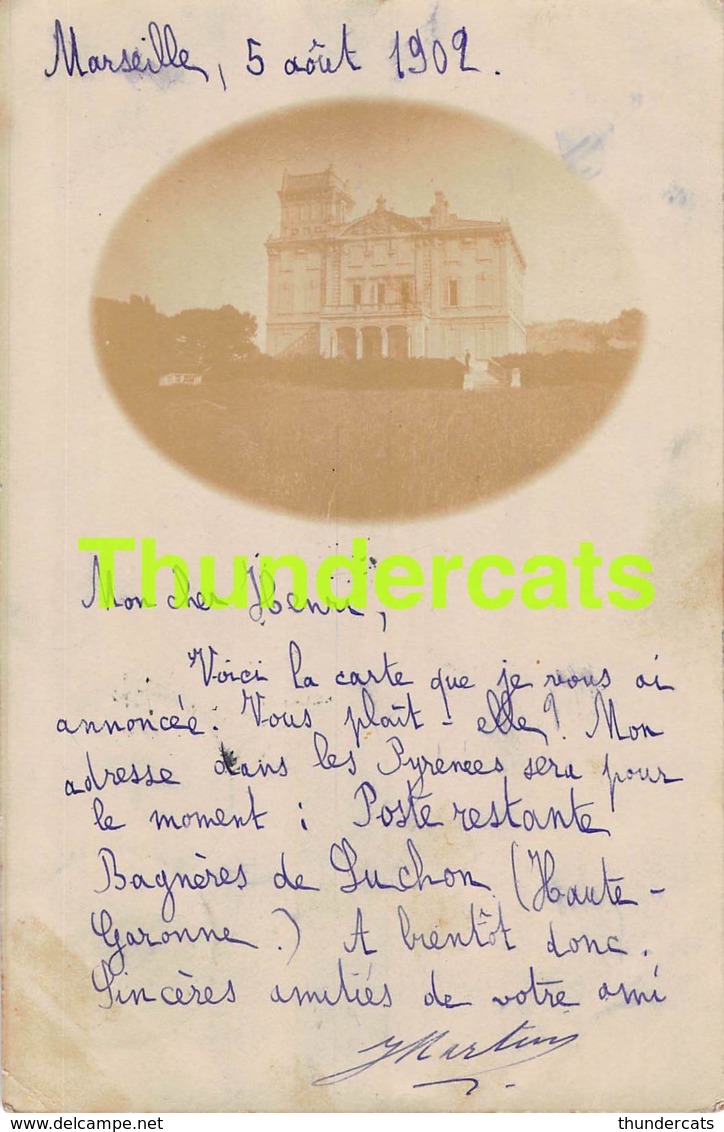 Marseille, 5 août 1902.
Thundercats
Mon cher Henri,
Voici la carte que je vous ai
annoncée. Vous plaît-elle? Mon
adresse dans les Pyrénées sera pour
le moment : Poste restante
Bagnères de Luchon (Haute-
Garonne.) A bientôt donc.
Sincères amitiés de votre ami
JMartin
delcampe.net
thundercats